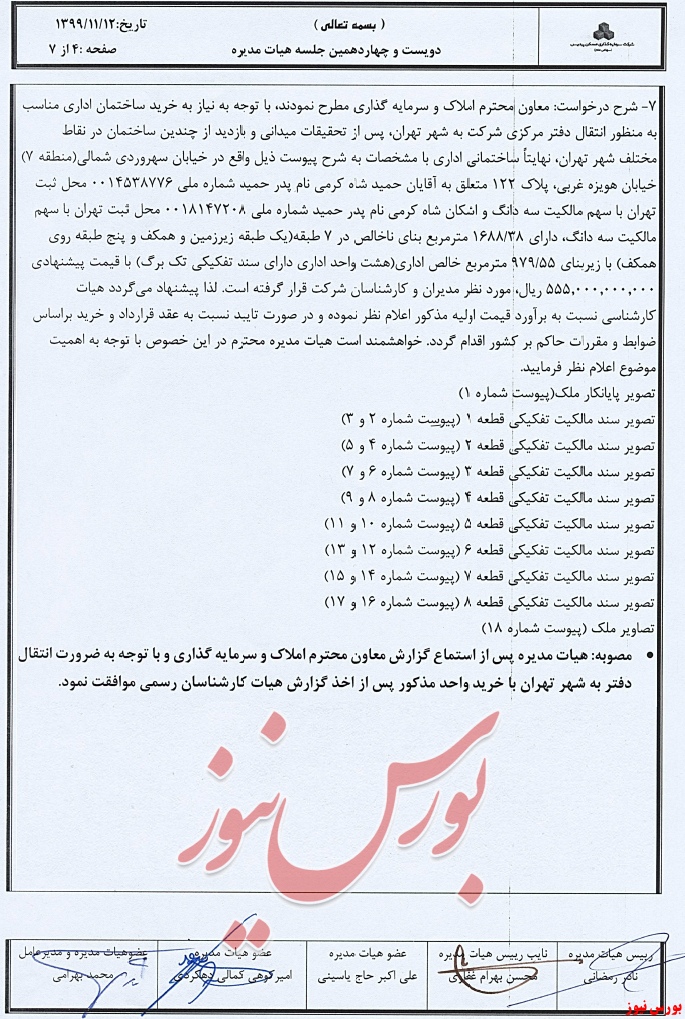 ( بسمه تعالی )
تاریخ:۱۳۹۹/۱۱/۱۲
دویست و چهاردهمین جلسه هیات مدیره
صفحه :۴ از ۷
۷- شرح درخواست: معاون محترم املاک و سرمایه گذاری مطرح نمودند، با توجه به نیاز به خرید ساختمان اداری مناسب
به منظور انتقال دفتر مرکزی شرکت به شهر تهران، پس از تحقیقات میدانی و بازدید از چندین ساختمان در نقاط
مختلف شهر تهران، نهایتاً ساختمانی اداری با مشخصات به شرح پیوست ذیل واقع در خیابان سهروردی شمالی(منطقه ۷)
خیابان هویزه غربی، پلاک ۱۲۲ متعلق به آقایان حمید شاه کرمی نام پدر حمید شماره ملی ۰۰۱۴۵۳۸۷۷۶ محل ثبت
تهران با سهم مالکیت سه دانگ و اشکان شاه کرمی نام پدر حمید شماره ملی ۰۰۱۸۱۴۷۲۰۸ محل ثبت تهران با سهم
مالکیت سه دانگ، دارای ۱۶۸۸/۳۸ مترمربع بنای ناخالص در ۷ طبقه(یک طبقه زیرزمین و همکف و پنج طبقه روی
همکف) با زیربنای ۹۷۹/۵۵ مترمربع خالص اداری(هشت واحد اداری دارای سند تفکیکی تک برگ) با قیمت پیشنهادی
۵۵۵,۰۰۰,۰۰۰,۰۰۰ ریال، مورد نظر مدیران و کارشناسان شرکت قرار گرفته است. لذا پیشنهاد می‌گردد هیات
کارشناسی نسبت به برآورد قیمت اولیه مذکور اعلام نظر نموده و در صورت تایید نسبت به عقد قرارداد و خرید براساس
ضوابط و مقررات حاکم بر کشور اقدام گردد. خواهشمند است هیات مدیره محترم در این خصوص با توجه به اهمیت
موضوع اعلام نظر فرمایید.
تصویر پایانکار ملک(پیوست شماره ۱)
تصویر سند مالکیت تفکیکی قطعه ۱ (پیوست شماره ۲ و ۳)
تصویر سند مالکیت تفکیکی قطعه ۲ (پیوست شماره ۴ و ۵)
تصویر سند مالکیت تفکیکی قطعه ۳ (پیوست شماره ۶ و ۷)
تصویر سند مالکیت تفکیکی قطعه ۴ (پیوست شماره ۸ و ۹)
تصویر سند مالکیت تفکیکی قطعه ۵ (پیوست شماره ۱۰ و ۱۱)
تصویر سند مالکیت تفکیکی قطعه ۶ (پیوست شماره ۱۲ و ۱۳)
تصویر سند مالکیت تفکیکی قطعه ۷ (پیوست شماره ۱۴ و ۱۵)
تصویر سند مالکیت تفکیکی قطعه ۸ (پیوست شماره ۱۶ و ۱۷)
تصاویر ملک (پیوست شماره ۱۸)
• مصوبه: هیات مدیره پس از استماع گزارش معاون محترم املاک و سرمایه گذاری و با توجه به ضرورت انتقال
دفتر به شهر تهران با خرید واحد مذکور پس از اخذ گزارش هیات کارشناسان رسمی موافقت نمود.
بورس نیوز
رییس هیات مدیره
نادر رمضانی
نایب رییس هیات مدیره
محسن بهرام غفاری
عضو هیات مدیره
علی اکبر حاج یاسینی
عضو هیات مدیره
امیرکوهی کمالی دهکردی
عضوهیات مدیره و مدیرعامل
محمد بهرامی
بورس نیوز